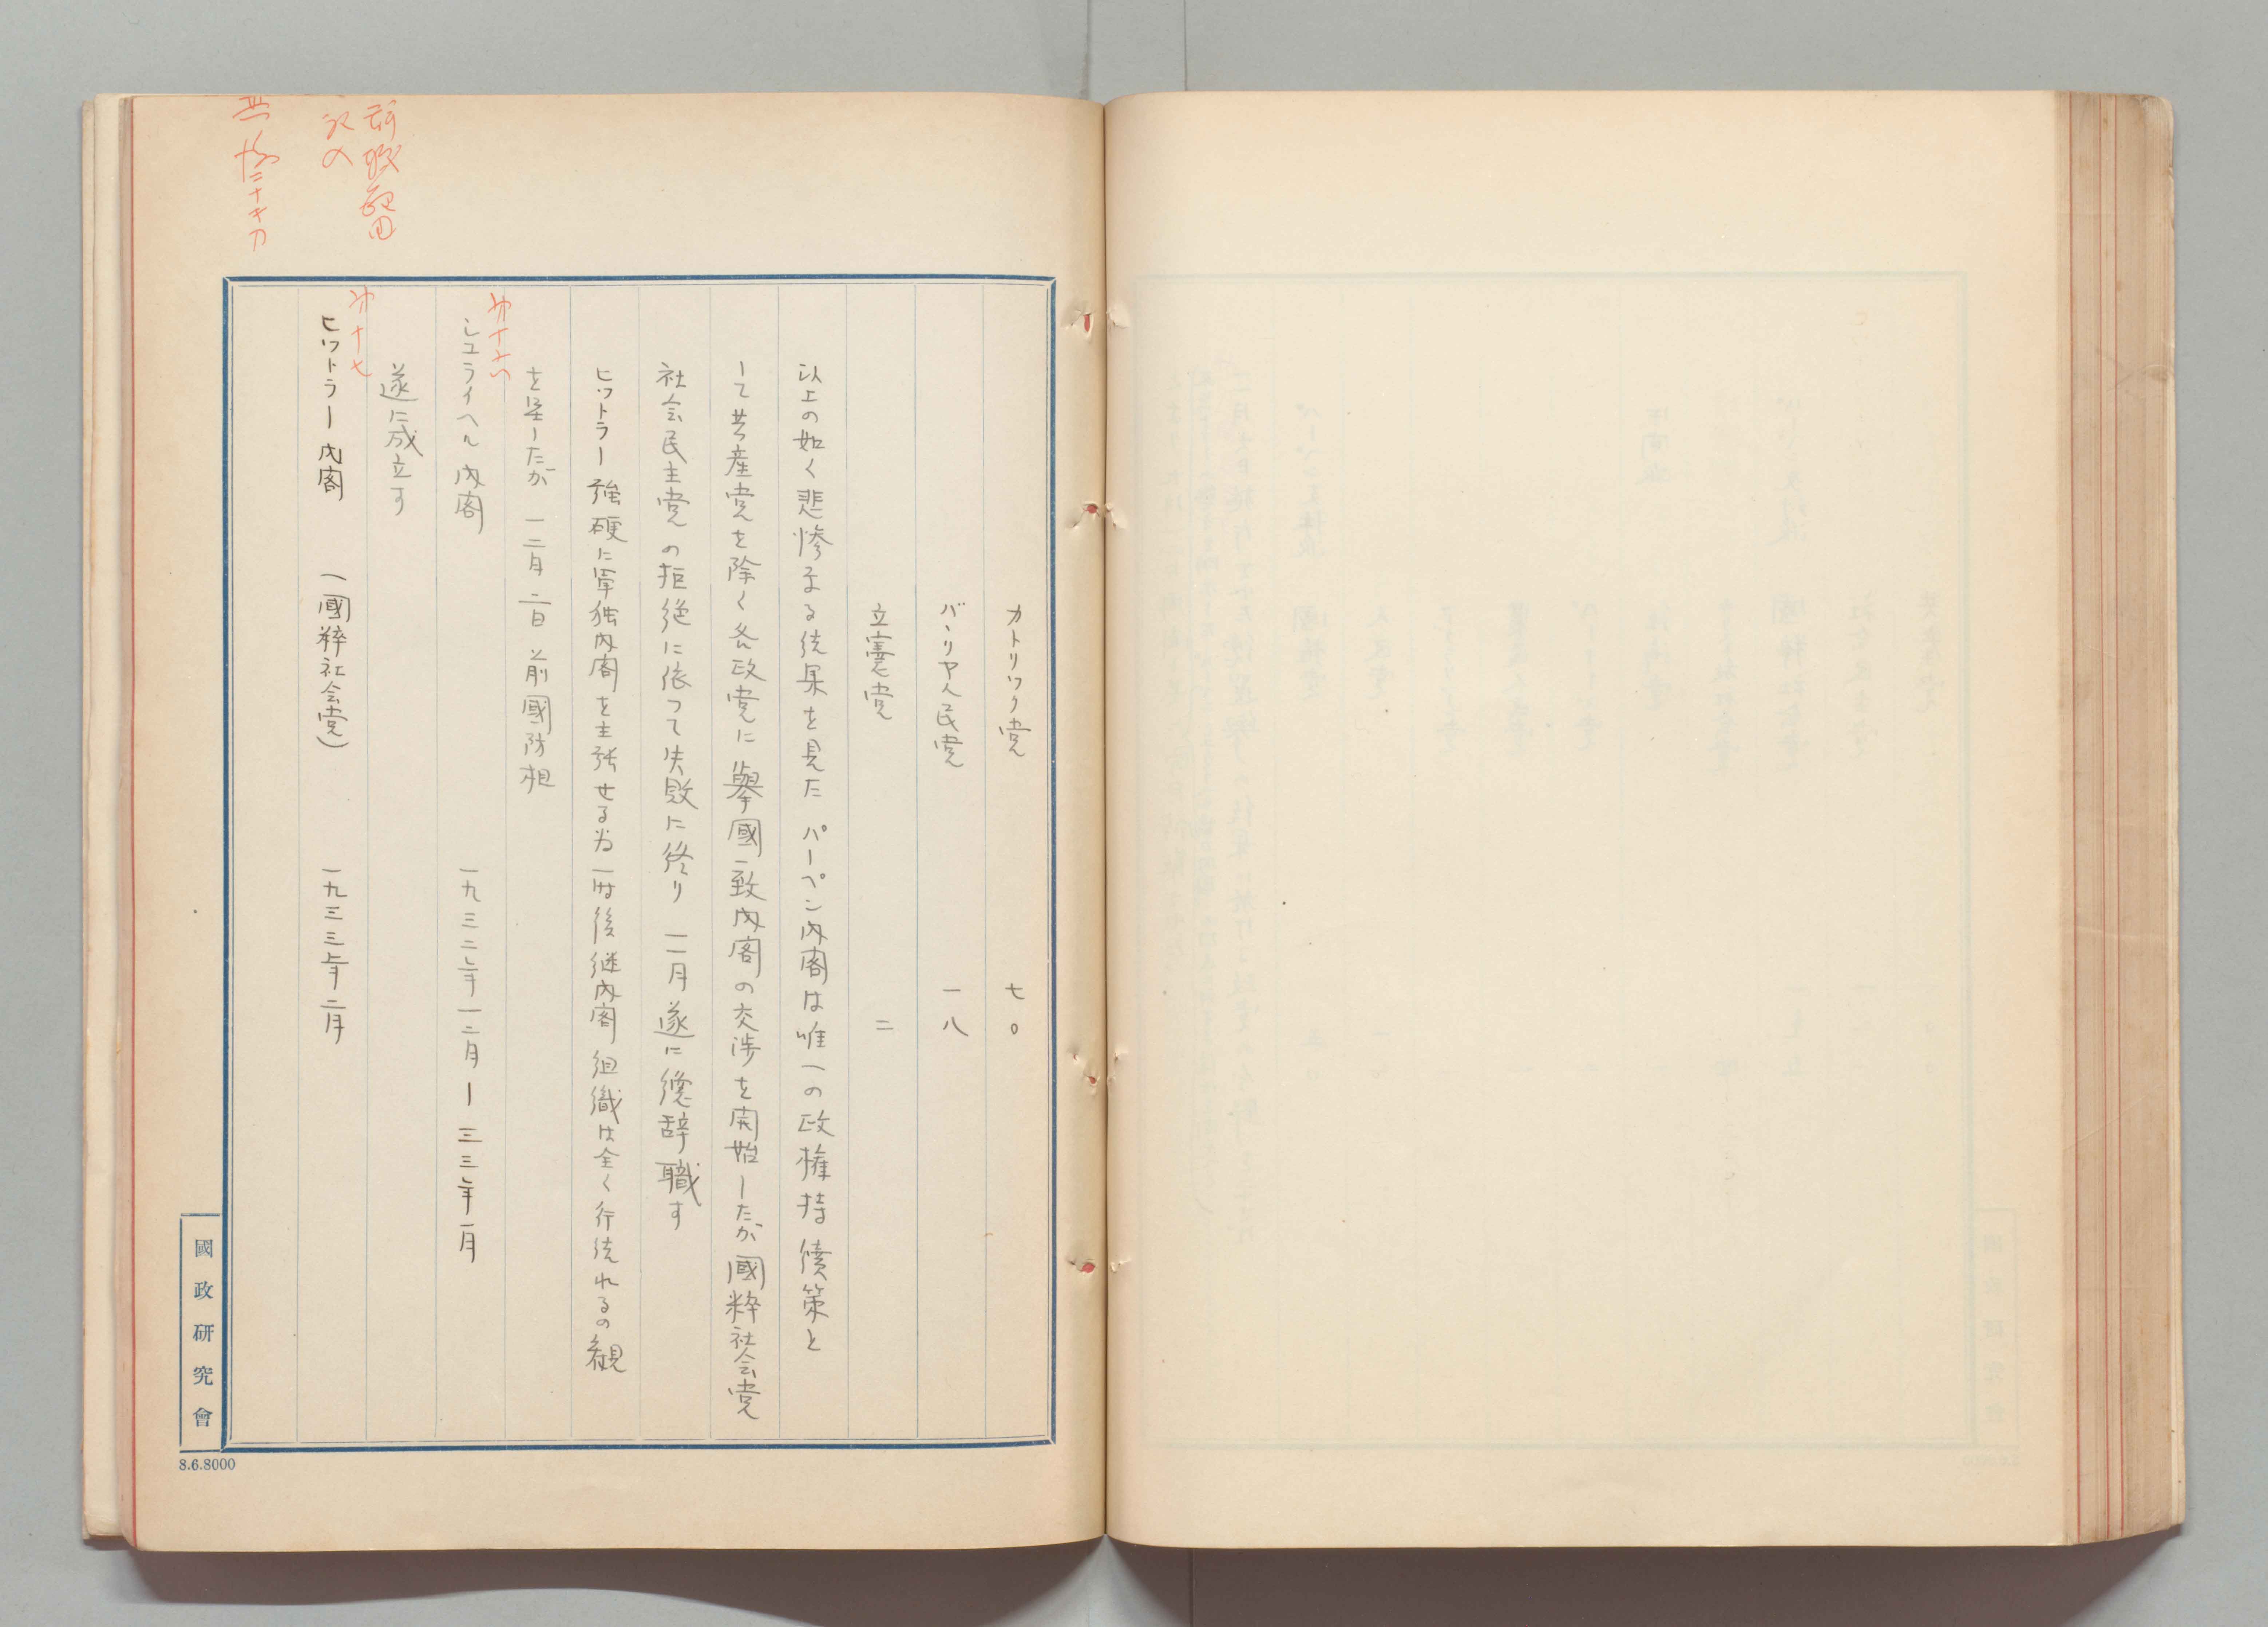 カトリック党 七〇
バヾリヤ人民党 一八
立憲党 二
以上の如く悲惨なる結果を見たパーペン内閣は唯一の政権持続策と
して共産党を除く各政党に擧國一致内閣の交渉を開始したが國粹社会党
社会民主党の拒絶に依つて失敗に終り 一一月遂に總辞職す
ヒットラー強硬に單独内閣を主張せる為一時後継内閣組織は全く行詰れるの観
を呈したが 一二月二日前國防相
第十六
シュライヘル内閣 一九三二年一二月ー三三年一月
遂に成立す
第十七
ヒットラー内閣 (國粹社会党) 一九三三年二月
國政研究會
8.6.8000